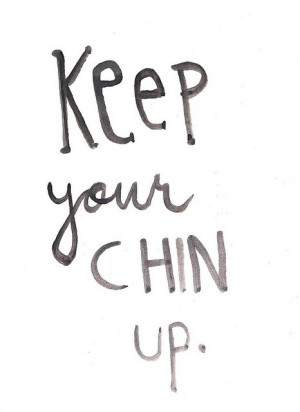 Keep
your
CHIN
up.